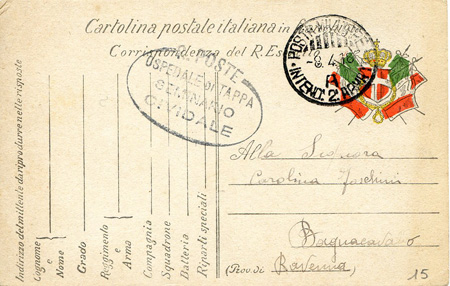 Cartolina postale italiana in
Corrispondenza del R. Es
R. POSTE
OSPEDALE DI TAPPA
SEMINARIO
CIVIDALE
POSTA MILITARE
-8.4.16
A
INTEND. 2ª ARMATA
Indirizzo del mittente da riprodurre nelle risposte
Cognome e Nome
Grado
Reggimento e Arma
Compagnia
Squadrone
Batteria
Riparti speciali
Alla Signora
Carolina
Bagnacavallo
(Prov. di Ravenna)
15